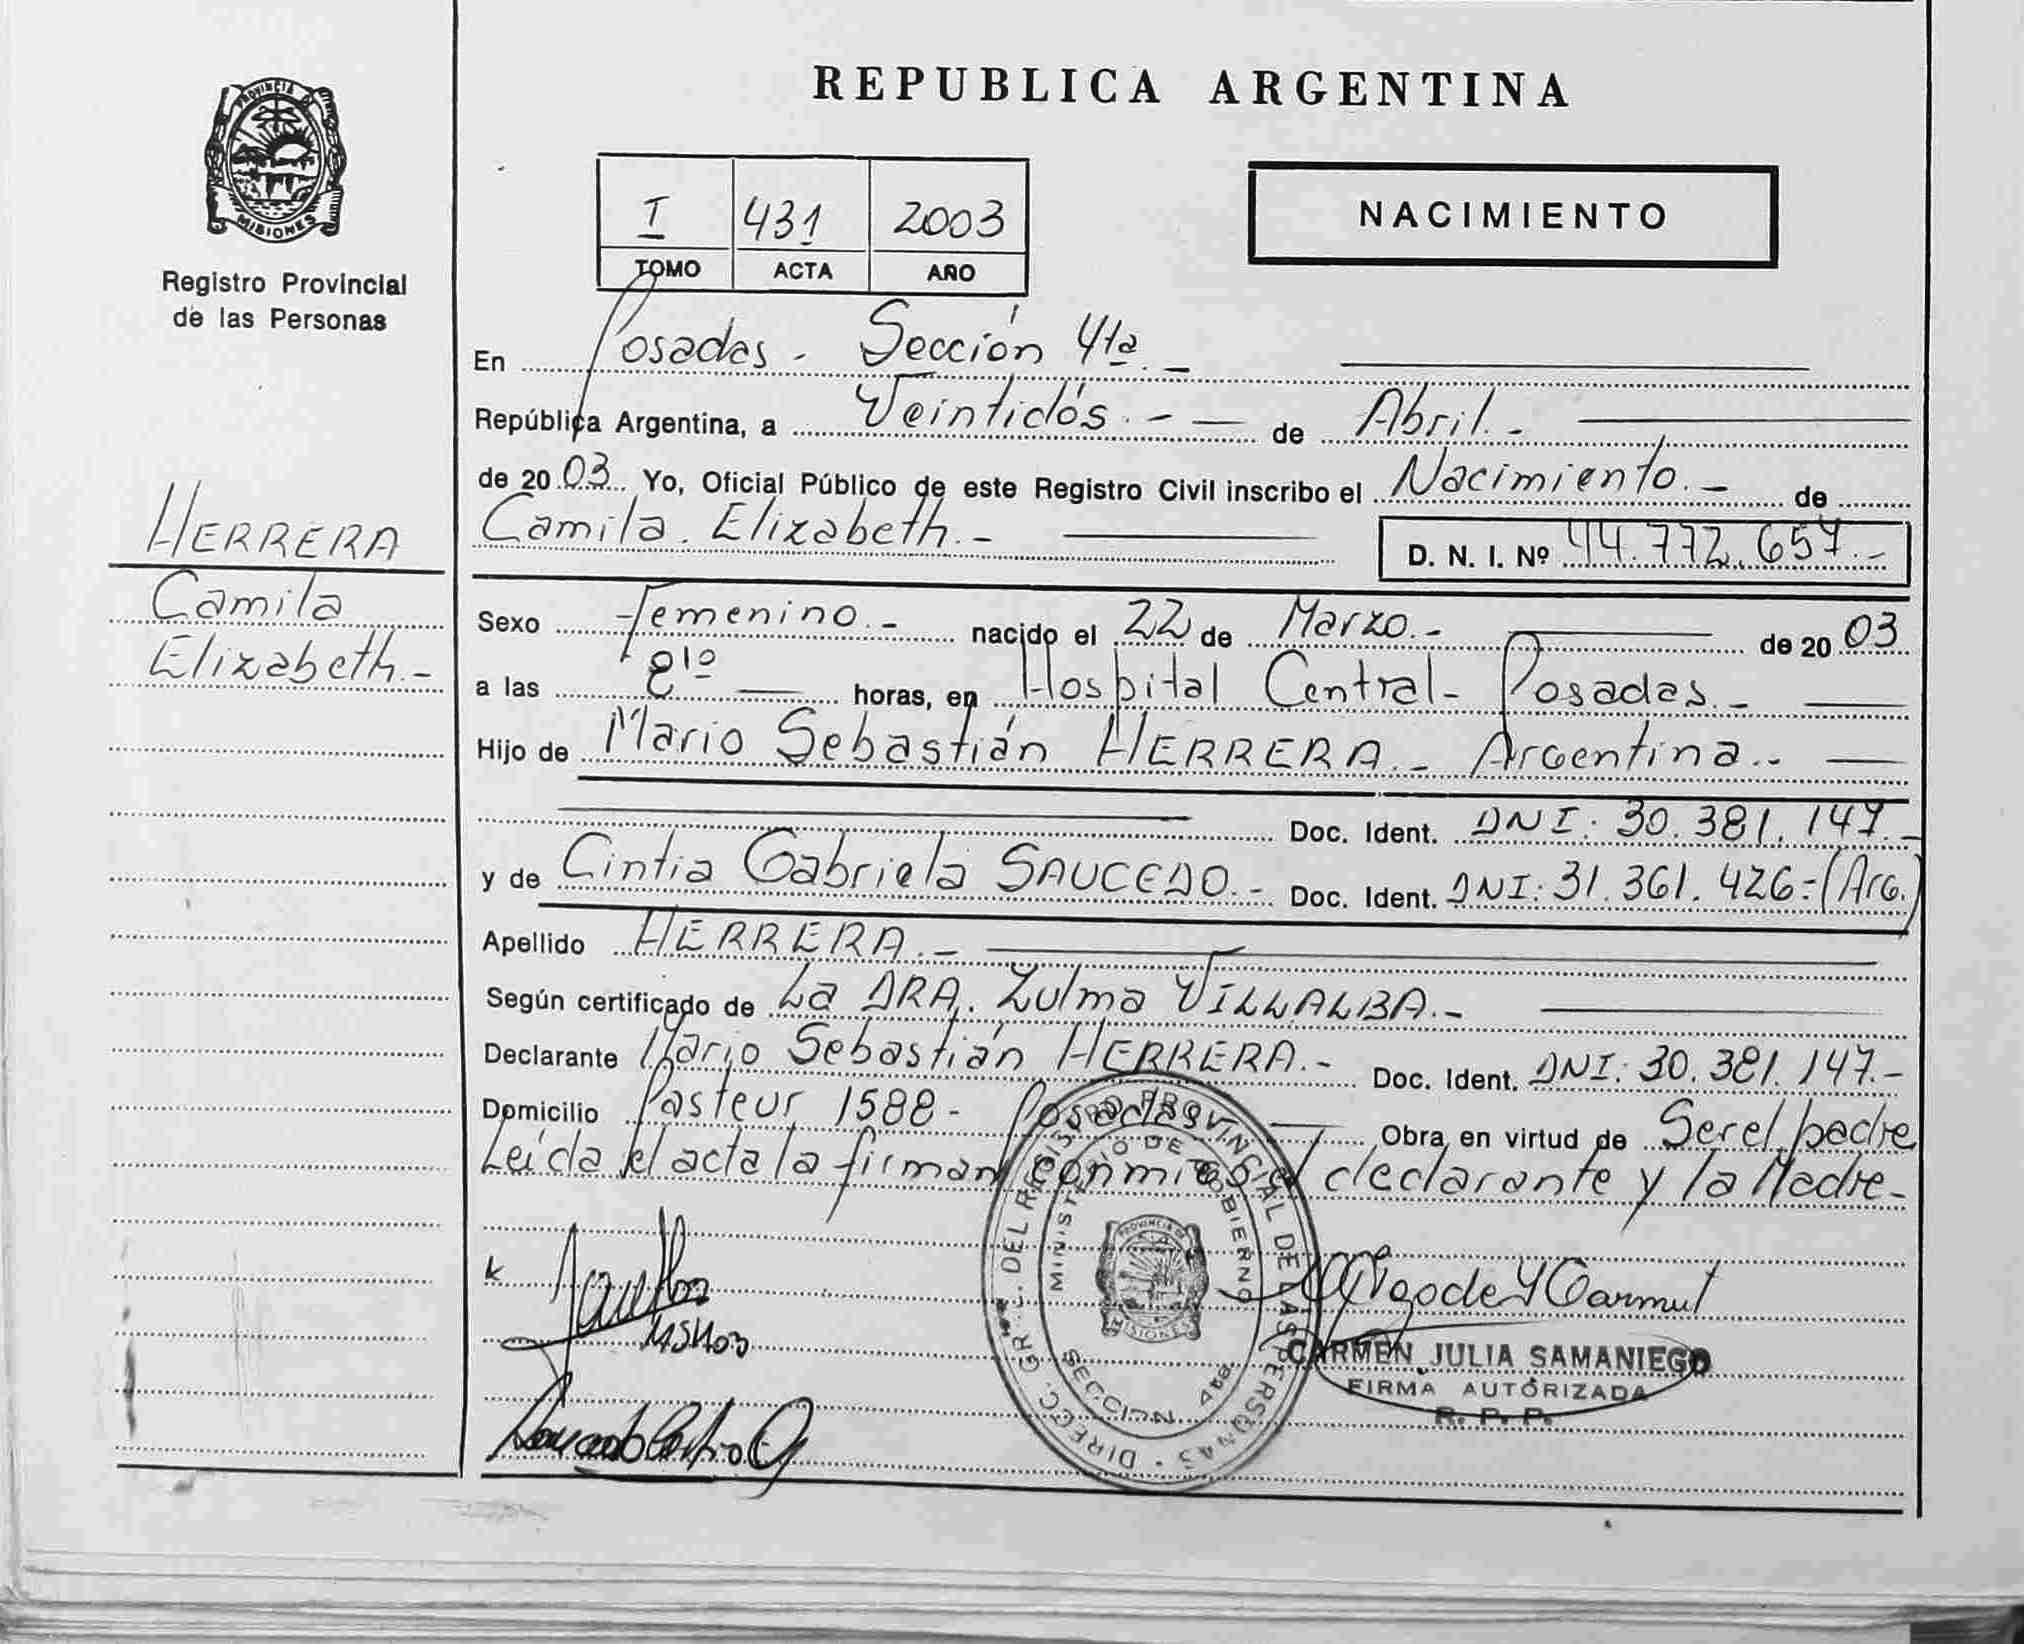 REPUBLICA ARGENTINA
PROVINCIA DE
MISIONES
Registro Provincial
de las Personas
I 431 2003
TOMO ACTA AÑO
NACIMIENTO
En Posadas - Sección 4ta. -
República Argentina, a Veintidós. - de Abril. -
de 2003 Yo, Oficial Público de este Registro Civil inscribo el Nacimiento. - de
Camila Elizabeth. - D. N. I. Nº 44.772.657.-
HERRERA
Camila
Elizabeth.-
Sexo Femenino. - nacido el 22 de Marzo. - de 2003
a las 8 10 horas, en Hospital Central - Posadas. -
Hijo de Mario Sebastián HERRERA. - Argentina. -
Doc. Ident. DNI: 30.381.147.-
y de Cintia Gabriela SAUCEDO. - Doc. Ident. DNI: 31.361.426=(Arg.)
Apellido HERRERA. -
Según certificado de La DRA. Zulma VILLALBA. -
Declarante Mario Sebastián HERRERA. - Doc. Ident. DNI: 30.381.147.-
Domicilio Pasteur 1588 - Posadas Obra en virtud de Ser el padre
Leída el acta la firman conmigo el declarante y la Madre-
DIRECC. GRAL. DEL REGISTRO PROVINCIAL DE LAS PERSONAS
MINISTERIO DE GOBIERNO
PROVINCIA DE
MISIONES
SECCION 4ta
CARMEN JULIA SAMANIEGO
FIRMA AUTORIZADA
R. P. P.